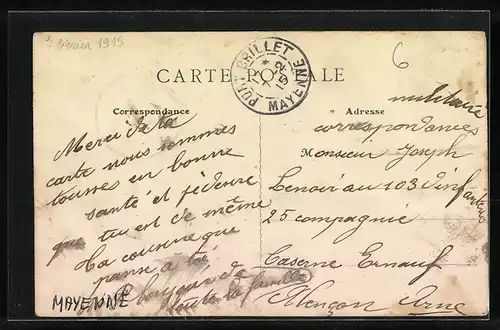 1 février 1915
6
PORT-BRILLET
* 20-2 15
MAYENNE
CARTE POSTALE
Correspondance
Adresse
militaire
correspondances
Merci de ta
carte nous sommes
tousses en bonne
santé et
que tu est de même
Ta cousine que
panse a toi
bonjour de
toute la famille
MAYENNE
Monsieur Joseph
Lenoir au 103 d'infanterie
25 compagnie
Caserne Ernauf
Alençon Orne